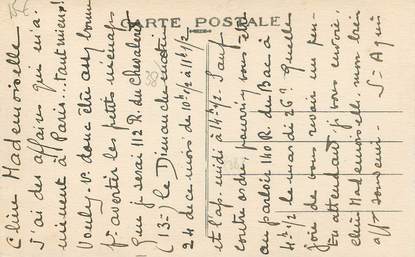 CARTE POSTALE
Chère Mademoiselle
J'ai des affaires qui m'a-
mènent à Paris... tant mieux!
Voulez-v. donc être assez bonne
pr avertir les petits ménages
que je serai 112 R. du Chevaleret
(13e) le Dimanche matin
24 de ce mois de 10h1/2 à 11h1/2
et l'ap-midi à 4h1/2. Sauf
contre ordre, pourriez vous être
au parloir 140 R. du Bac à
4h1/2 le mardi 26? Quelle
joie de vous revoir un peu-
En attendant je vous envoie,
chère Mademoiselle, mon très
aff. souvenir.
S- Agnès